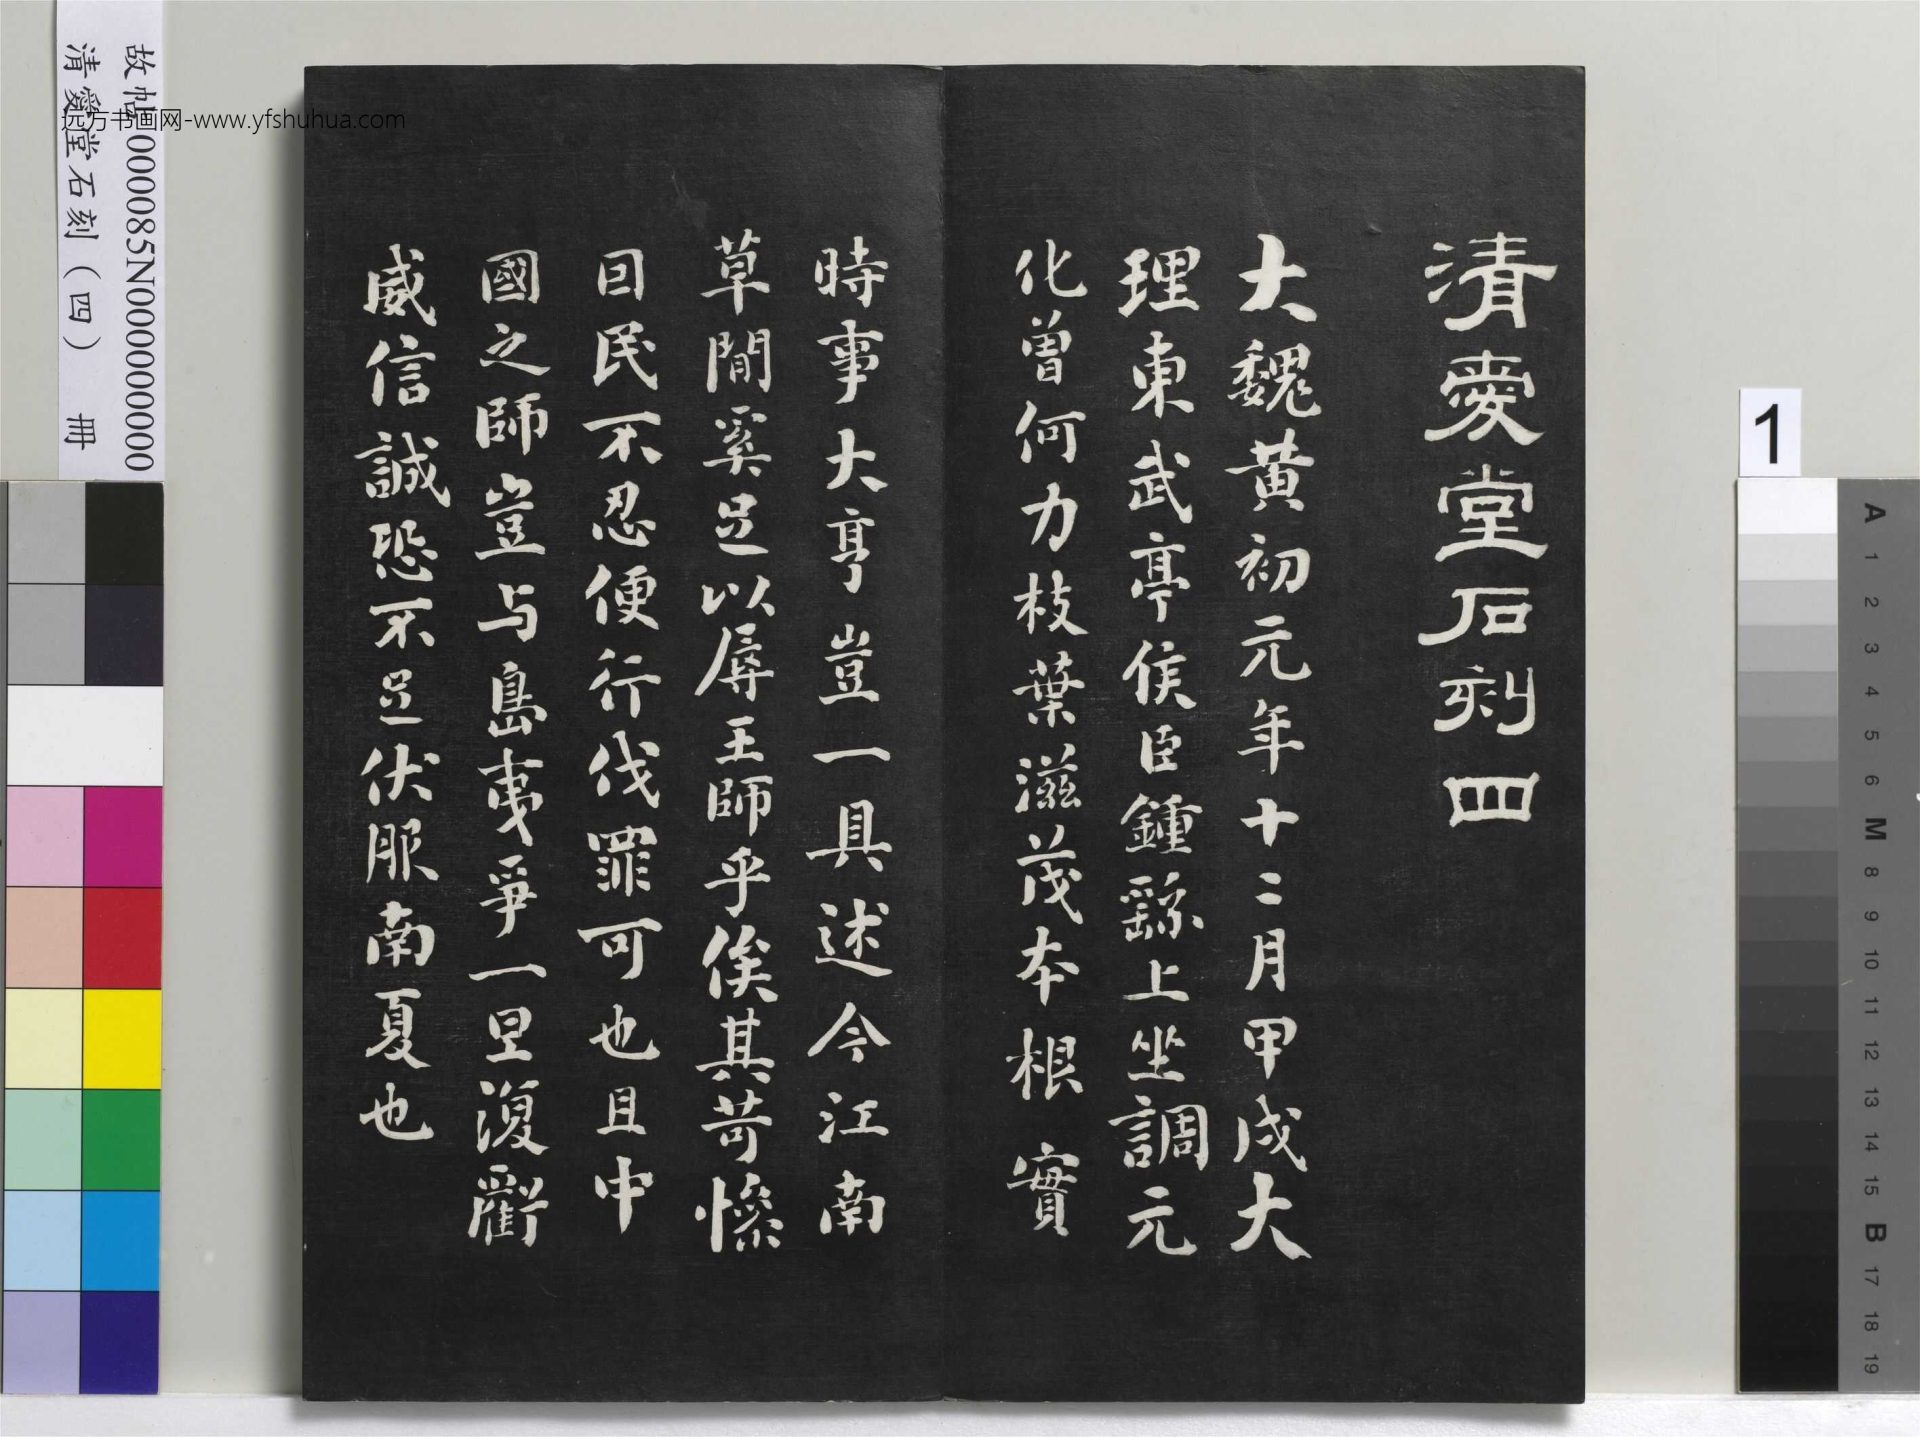 清愛堂石刻四
大魏黃初元年十二月甲戌大
理東武亭侯臣鍾繇上坐調元
化曾何力枝葉滋茂本根實
時事大亨豈一具述今江南
草間奚足以辱王師乎俟其苛慘
目民不忍便行伐罪可也且中
國之師豈与島夷爭一旦復虧
威信誠恐不足伏服南夏也
故帖000085N000000000
清愛堂石刻（四） 冊
远方书画网-www.yfshuhua.com
1
A
1
2
3
4
5
6
M
8
9
10
11
12
13
14
15
B
17
18
19